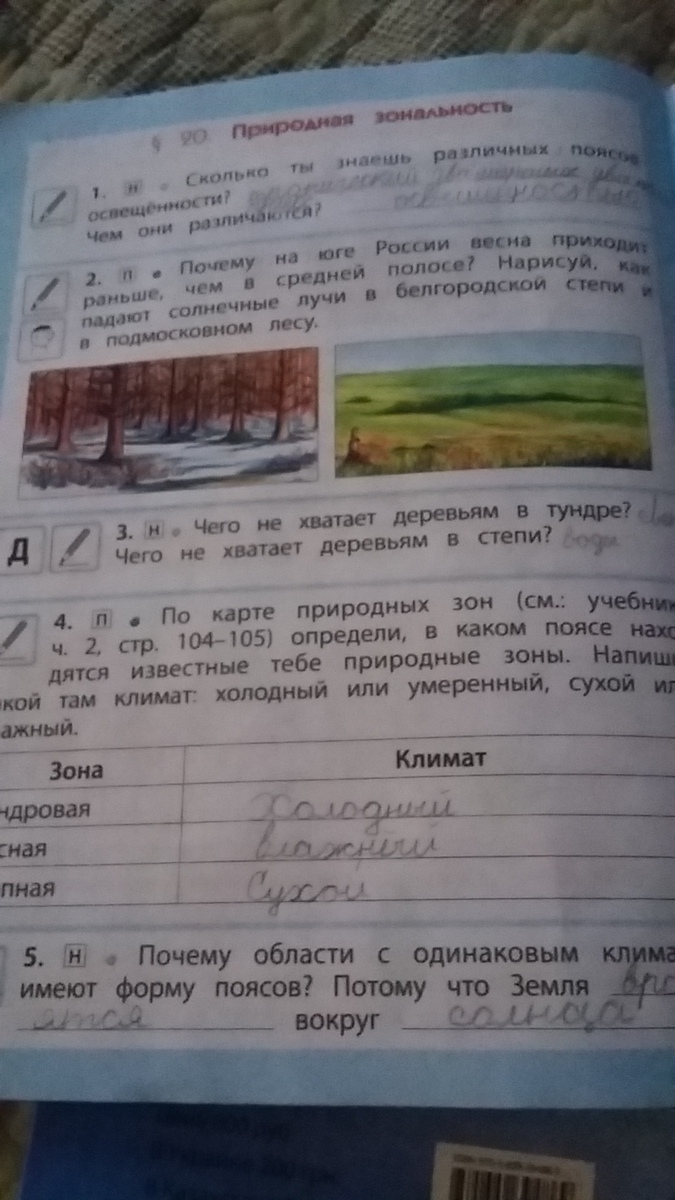 § 20 Природная зональность
1. Н Сколько ты знаешь различных поясов
освещённости?
Чем они различаются?
2. П Почему на юге России весна приходит
раньше, чем в средней полосе? Нарисуй, как
падают солнечные лучи в белгородской степи и
в подмосковном лесу.
Д 3. Н Чего не хватает деревьям в тундре?
Чего не хватает деревьям в степи? воды
4. П По карте природных зон (см.: учебник
ч. 2, стр. 104–105) определи, в каком поясе нахо
дятся известные тебе природные зоны. Напиши
кой там климат: холодный или умеренный, сухой ил
ажный.
Зона Климат
ндровая Холодный
сная влажный
пная Сухой
5. Н Почему области с одинаковым клима
имеют форму поясов? Потому что Земля
вокруг солнца